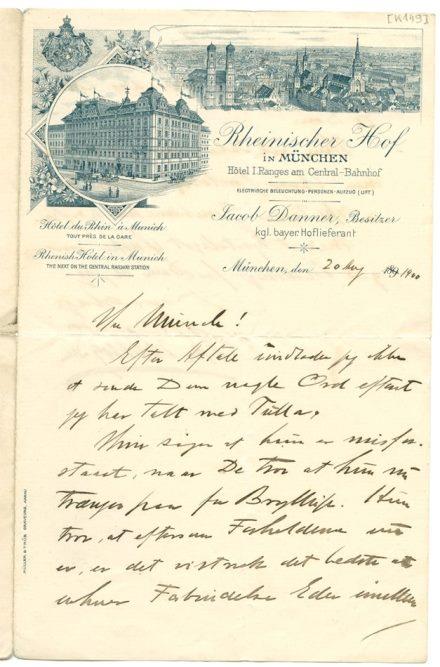 [K149]
Rheinischer Hof
IN MÜNCHEN
Hôtel I. Ranges am Central-Bahnhof
ELECTRISCHE BELEUCHTUNG - PERSONEN-AUFZUG (LIFT)
Jacob Danner, Besitzer
kgl. bayer. Hoflieferant
Hôtel du Rhin à Munich
TOUT PRÈS DE LA GARE
Rhenish Hotel in Munich
THE NEXT ON THE CENTRAL RAILWAY STATION
München, den 20 May 1900
Hr Munch!
Efter Aftale undlader jeg ikke
at sende Dem nogle Ord efterat
jeg har talt med Tulla.
Hun siger at hun er misfor-
staaet, naar De tror at hun nu
trænger paa for Bryllup. Hun
tror, at eftersom Forholdene nu
er, er det vistnok det bedste at
enhver Forbindelse Eder imellem